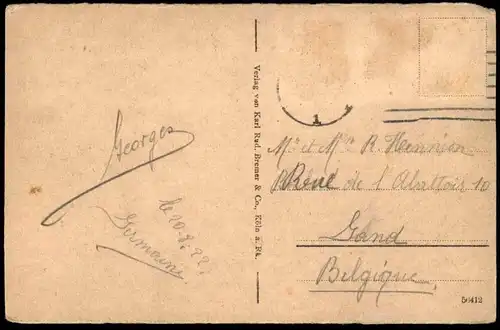 Georges
le 20.8.22.
Germaine
Verlag von Karl Rud. Bremer & Co., Köln a. Rh.
1
Mr et Mme R. Hennion
Rue de l'Abattoir 10
Gand
Belgique.
56412